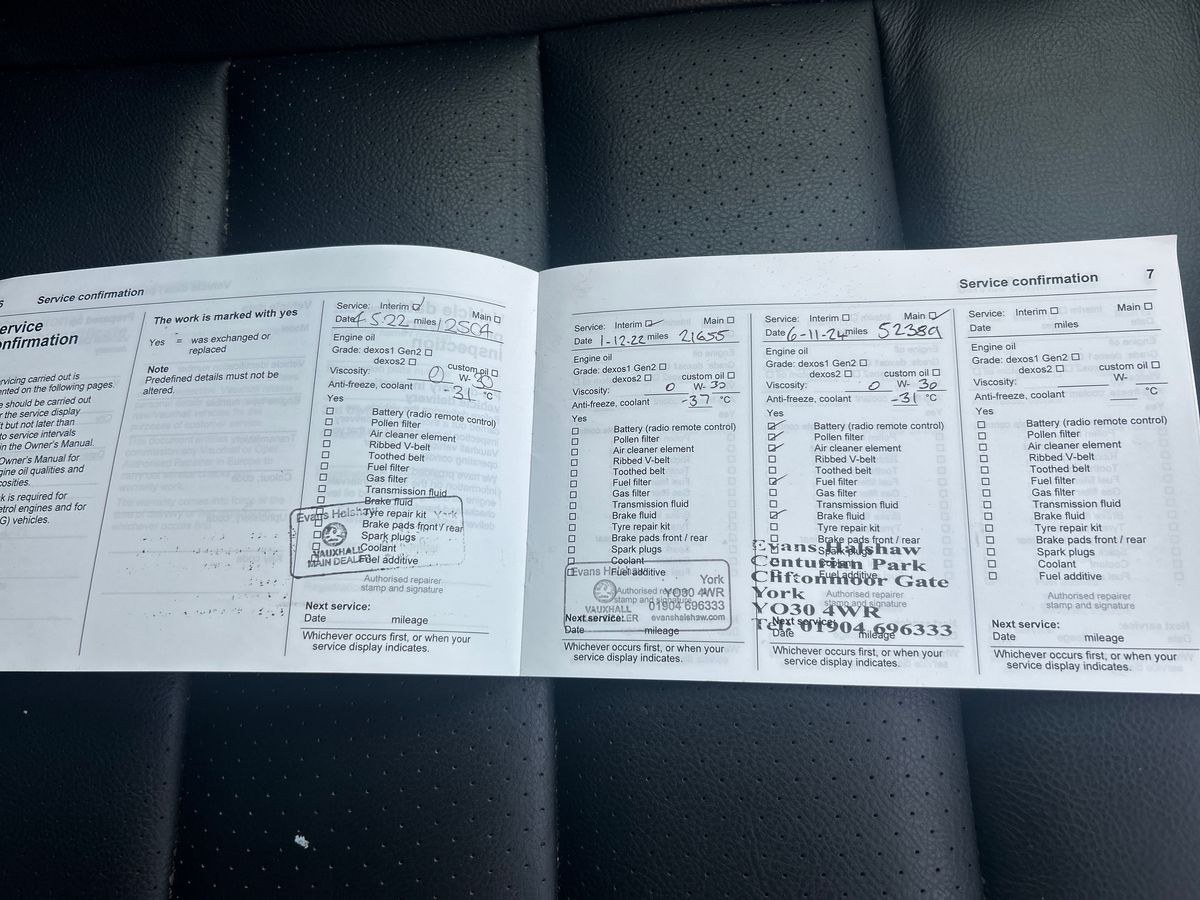 Service confirmation
ervice
onfirmation
rvicing carried out is
ented on the following pages.
e should be carried out
r the service display
t but not later than
to service intervals
in the Owner's Manual.
Owner's Manual for
gine oil qualities and
cosities.
k is required for
etrol engines and for
G) vehicles.
The work is marked with yes
Yes = was exchanged or
replaced
Note
Predefined details must not be
altered.
Service: Interim ☑ Main ☐
Date 4-5-22 miles 12504
Engine oil
Grade: dexos1 Gen2 ☐
dexos2 ☐ custom oil ☐
Viscosity: 0 W- 30
Anti-freeze, coolant -31 °C
Yes
☐ Battery (radio remote control)
☐ Pollen filter
☐ Air cleaner element
☐ Ribbed V-belt
☐ Toothed belt
☐ Fuel filter
☐ Gas filter
☐ Transmission fluid
☐ Brake fluid
☐ Tyre repair kit
☐ Brake pads front / rear
☐ Spark plugs
☐ Coolant
☐ Fuel additive
Evans Halshaw York
VAUXHALL
MAIN DEALER
Authorised repairer
stamp and signature
Next service:
Date mileage
Whichever occurs first, or when your
service display indicates.
Service confirmation 7
Service: Interim ☑ Main ☐
Date 1-12-22 miles 21655
Engine oil
Grade: dexos1 Gen2 ☐
dexos2 ☐ custom oil ☐
Viscosity: 0 W- 30
Anti-freeze, coolant -37 °C
Yes
☐ Battery (radio remote control)
☐ Pollen filter
☐ Air cleaner element
☐ Ribbed V-belt
☐ Toothed belt
☐ Fuel filter
☐ Gas filter
☐ Transmission fluid
☐ Brake fluid
☐ Tyre repair kit
☐ Brake pads front / rear
☐ Spark plugs
☐ Coolant
☐ Fuel additive
Evans Halshaw
York
YO30 4WR
01904 696333
evanshalshaw.com
VAUXHALL
Authorised repairer
stamp and signature
Next service:
Date mileage
Whichever occurs first, or when your
service display indicates.
Service: Interim ☐ Main ☑
Date 6-11-24 miles 52389
Engine oil
Grade: dexos1 Gen2 ☐
dexos2 ☐ custom oil ☐
Viscosity: 0 W- 30
Anti-freeze, coolant -31 °C
Yes
☑ Battery (radio remote control)
☑ Pollen filter
☑ Air cleaner element
☐ Ribbed V-belt
☐ Toothed belt
☑ Fuel filter
☐ Gas filter
☐ Transmission fluid
☑ Brake fluid
☐ Tyre repair kit
☐ Brake pads front / rear
☐ Spark plugs
☐ Coolant
☐ Fuel additive
Evans Halshaw
Centurian Park
Cliftonmoor Gate
York
YO30 4WR
Tel: 01904 696333
Authorised repairer
stamp and signature
Next service:
Date mileage
Whichever occurs first, or when your
service display indicates.
Service: Interim ☐ Main ☐
Date miles
Engine oil
Grade: dexos1 Gen2 ☐
dexos2 ☐ custom oil ☐
Viscosity: W-
Anti-freeze, coolant °C
Yes
☐ Battery (radio remote control)
☐ Pollen filter
☐ Air cleaner element
☐ Ribbed V-belt
☐ Toothed belt
☐ Fuel filter
☐ Gas filter
☐ Transmission fluid
☐ Brake fluid
☐ Tyre repair kit
☐ Brake pads front / rear
☐ Spark plugs
☐ Coolant
☐ Fuel additive
Authorised repairer
stamp and signature
Next service:
Date mileage
Whichever occurs first, or when your
service display indicates.